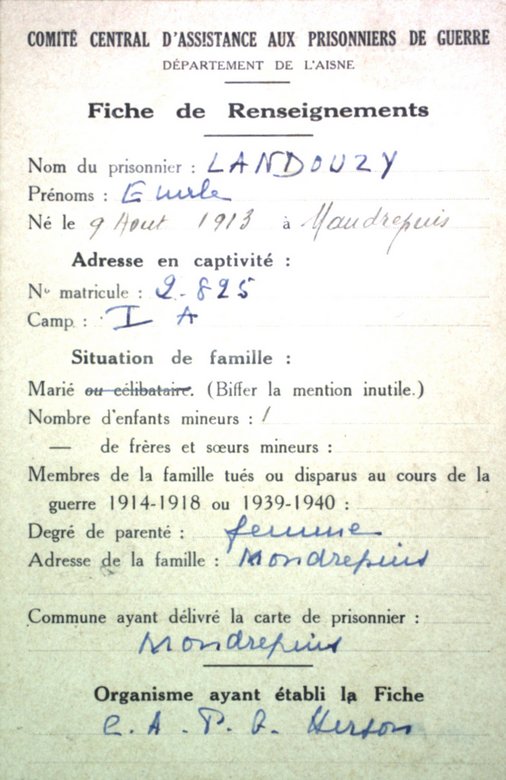 COMITÉ CENTRAL D'ASSISTANCE AUX PRISONNIERS DE GUERRE
DÉPARTEMENT DE L'AISNE
Fiche de Renseignements
Nom du prisonnier : LANDOUZY
Prénoms : Emile
Né le 9 Aout 1913 à Mondrepuis
Adresse en captivité :
No matricule : 2.825
Camp : I A
Situation de famille :
Marié ou célibataire. (Biffer la mention inutile.)
Nombre d'enfants mineurs : 1
— de frères et sœurs mineurs :
Membres de la famille tués ou disparus au cours de la
guerre 1914-1918 ou 1939-1940 :
Degré de parenté : femme
Adresse de la famille : Mondrepuis
Commune ayant délivré la carte de prisonnier :
Mondrepuis
Organisme ayant établi la Fiche
C. A. P. G. Hirson